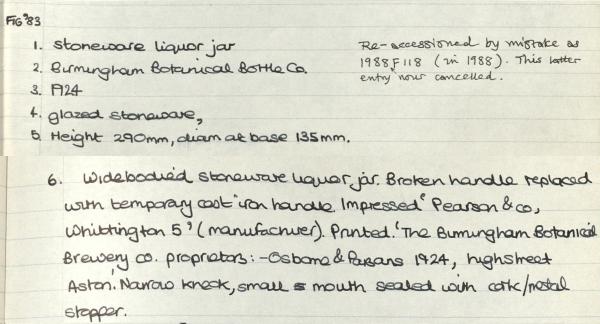 FIG'83
1. Stoneware liquor jar
2. Birmingham Botanical Bottle Co.
3. 1924
4. glazed stoneware,
5. Height 290mm, diam at base 135mm.
Re-accessioned by mistake as
1988F118 (in 1988). This latter
entry now cancelled.
6. Widebodied stoneware liquor jar. Broken handle replaced
with temporary cast iron handle. Impressed 'Pearson & co,
Whittington 5' (manufacturer). Printed. 'The Birmingham Botanical
Brewery co. proprietors:- Osborne & Parsons 1924, highstreet
Aston. Narrow kneck, small mouth sealed with cork/metal
stopper.